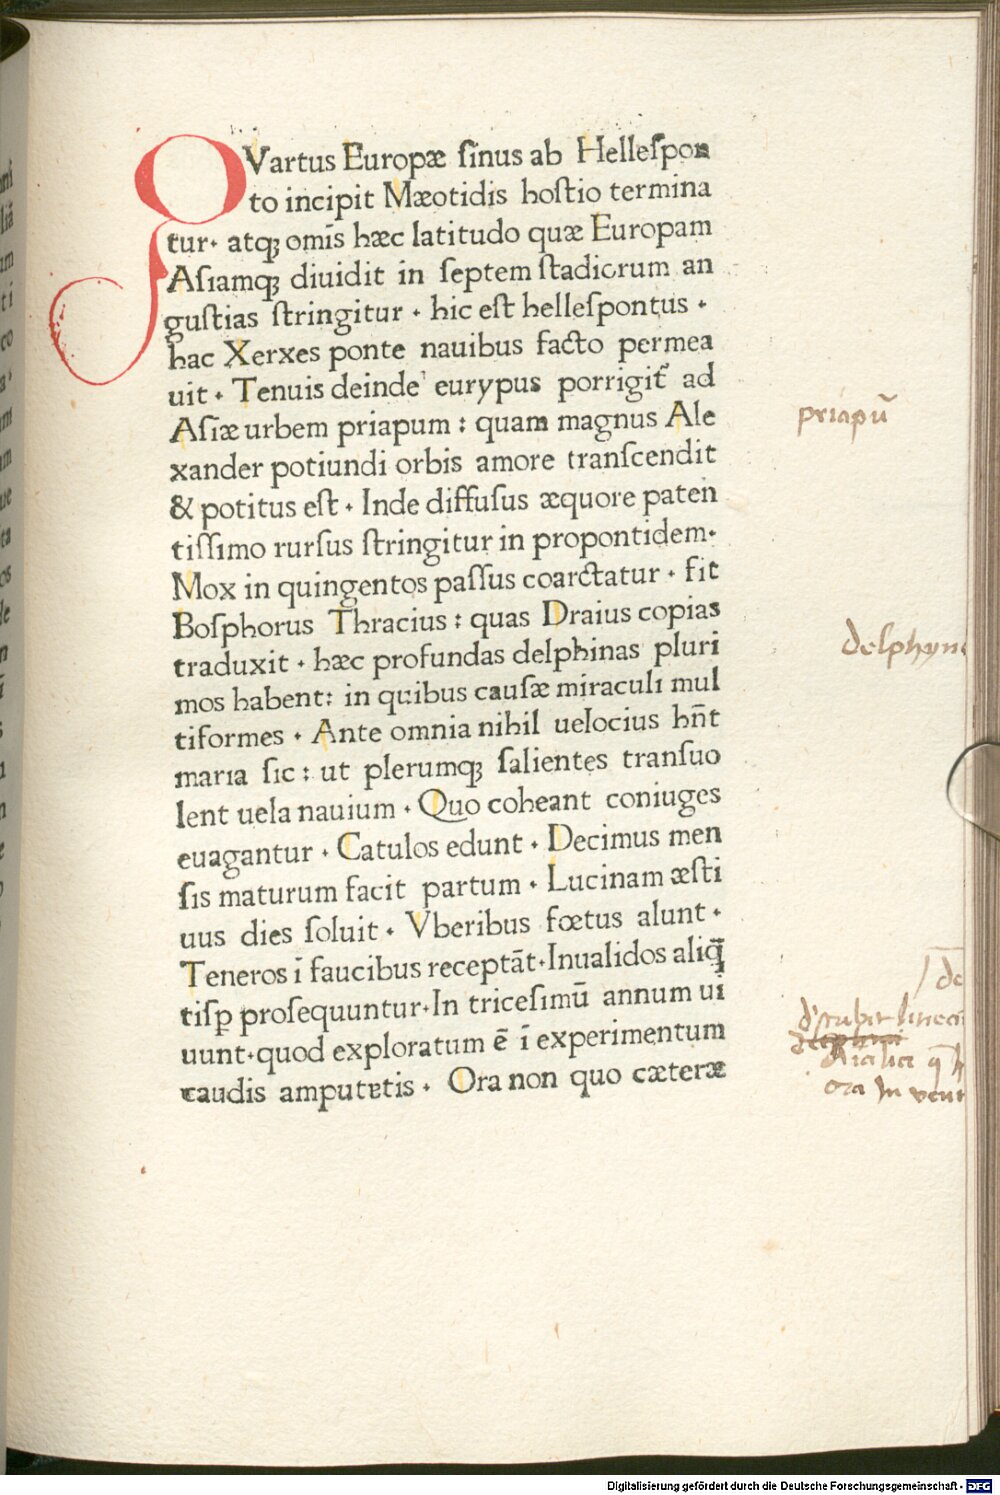 QVartus Europæ ſinus ab Helleſpon
to incipit Mæotidis hoſtio termina
tur· atqꝫ om̄is hæc latitudo quæ Europam
Aſiamqꝫ diuidit in ſeptem ſtadiorum an
guſtias ſtringitur · hic eſt helleſpontus ·
hac Xerxes ponte nauibus facto permea
uit · Tenuis deinde eurypus porrigit᷑ ad
Aſiæ urbem priapum : quam magnus Ale
xander potiundi orbis amore tranſcendit
& potitus eſt · Inde diffuſus æquore paten
tiſſimo rurſus ſtringitur in propontidem·
Mox in quingentos paſſus coarctatur · fit
Boſphorus Thracius : quas Draius copias
traduxit · hæc profundas delphinas pluri
mos habent: in quibus cauſæ miraculi mul
tiformes · Ante omnia nihil uelocius hn̄t
maria ſic : ut plerumqꝫ ſalientes tranſuo
lent uela nauium · Quo coheant coniuges
euagantur · Catulos edunt · Decimus men
ſis maturum facit partum · Lucinam æſti
uus dies ſoluit · Vberibus fœtus alunt ·
Teneros ī faucibus receptāt·Inualidos aliq̄
tiſꝑ proſequuntur·In triceſimū annum ui
uunt·quod exploratum ē ī experimentum
caudis amputetis · Ora non quo cæteræ
priapū
delphyn
ora in vent
Digitalisierung gefördert durch die Deutsche Forschungsgemeinschaft - DFG